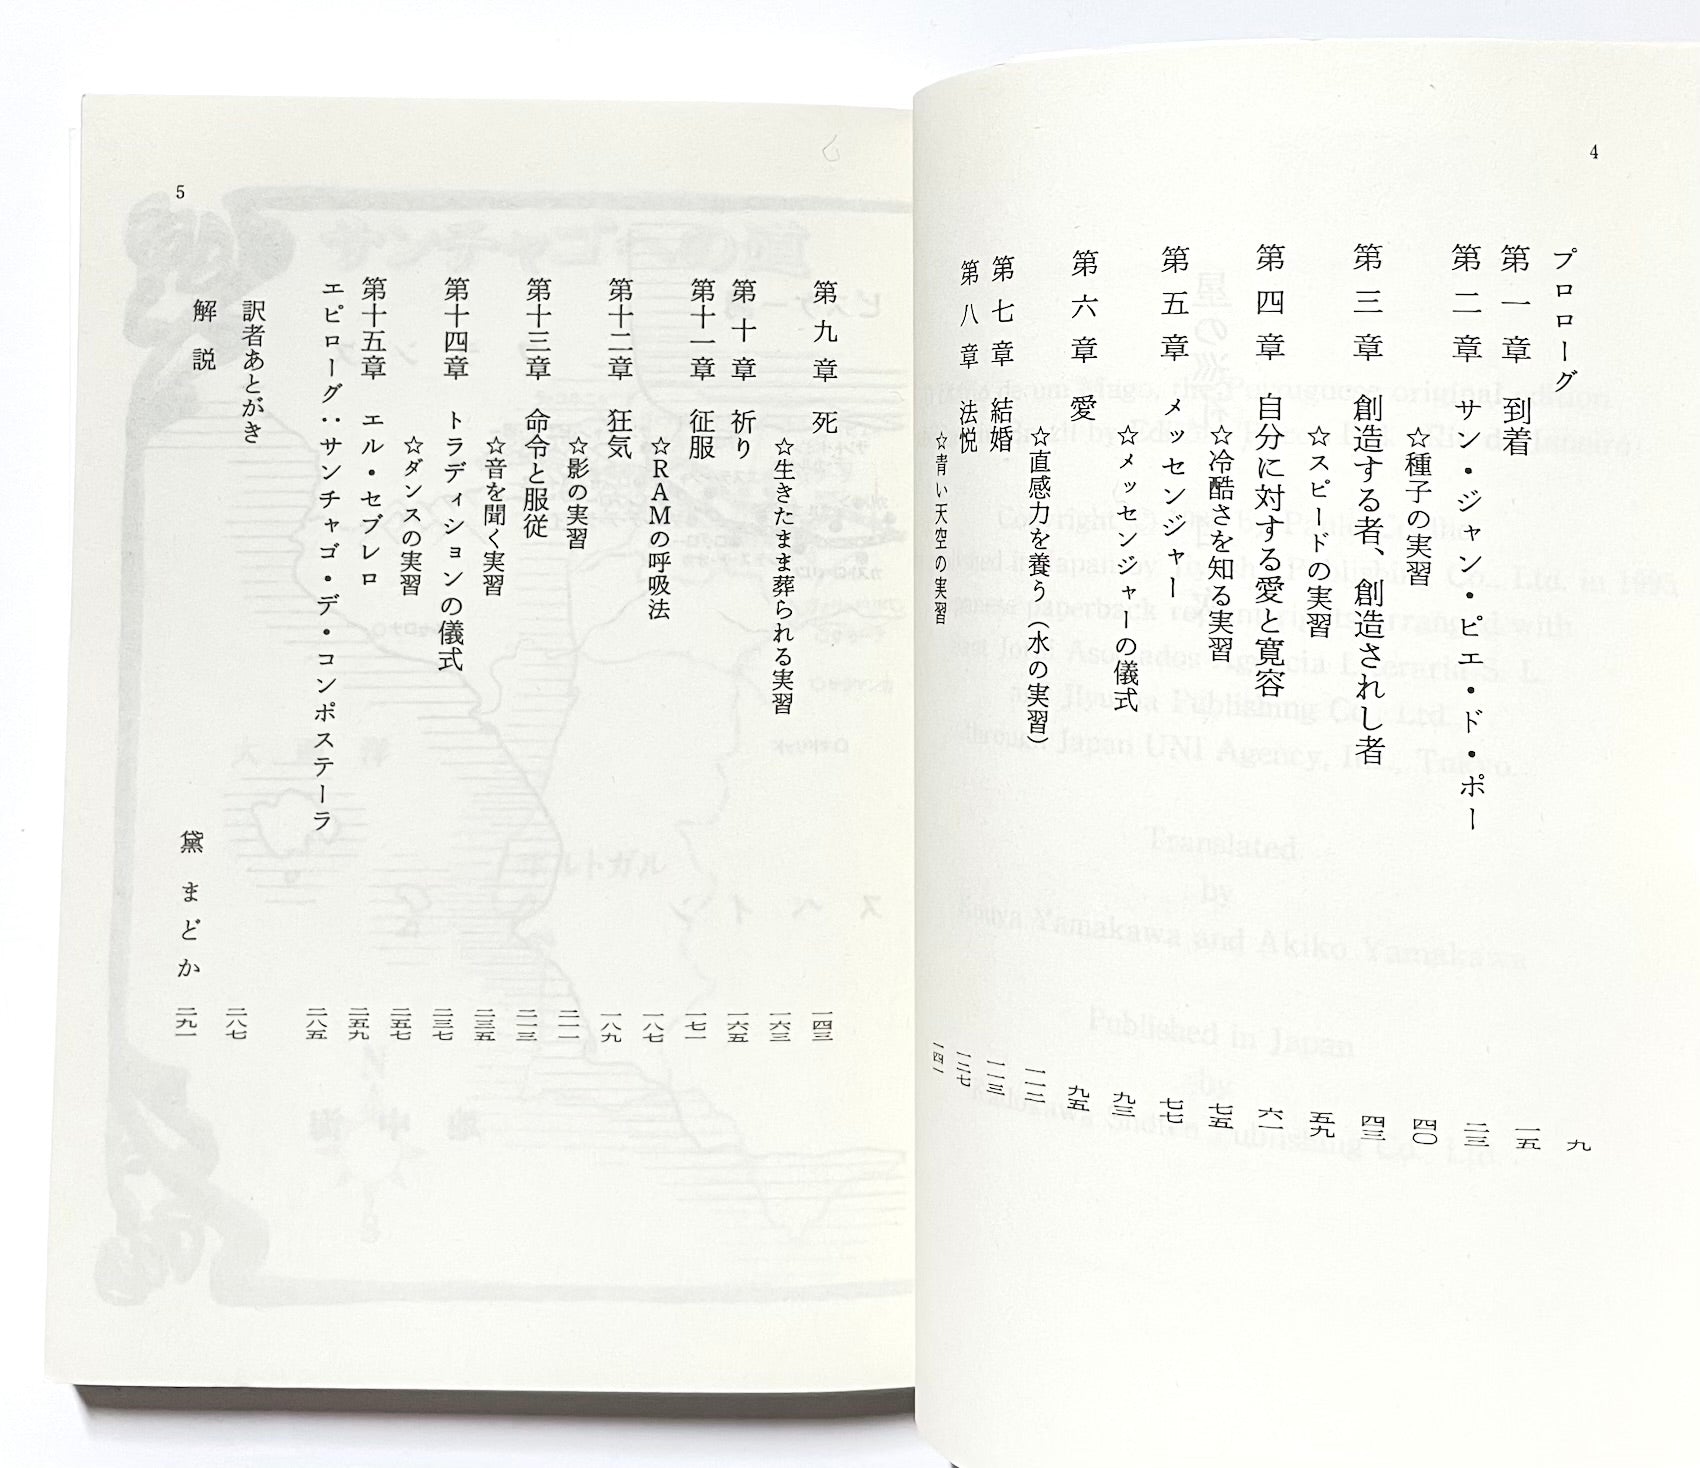 4
プロローグ 九
第一章 到着 一五
第二章 サン・ジャン・ピエ・ド・ポー 二三
☆種子の実習 四〇
第三章 創造する者、創造されし者 四三
☆スピードの実習 五九
第四章 自分に対する愛と寛容 六一
☆冷酷さを知る実習 七五
第五章 メッセンジャー 七七
☆メッセンジャーの儀式 九三
第六章 愛 九五
☆直感力を養う（水の実習） 一一二
第七章 結婚 一一三
第八章 法悦 一二七
☆青い天空の実習 一四一
第九章 死 一四三
☆生きたまま葬られる実習 一六三
第十章 祈り 一六五
第十一章 征服 一七一
☆RAMの呼吸法 一八七
第十二章 狂気 一八九
☆影の実習 二一一
第十三章 命令と服従 二一三
☆音を聞く実習 二三五
第十四章 トラディションの儀式 二三七
☆ダンスの実習 二五七
第十五章 エル・セブレロ 二五九
エピローグ：サンチャゴ・デ・コンポステーラ 二八五
訳者あとがき 二八七
解説 黛まどか 二九一
5